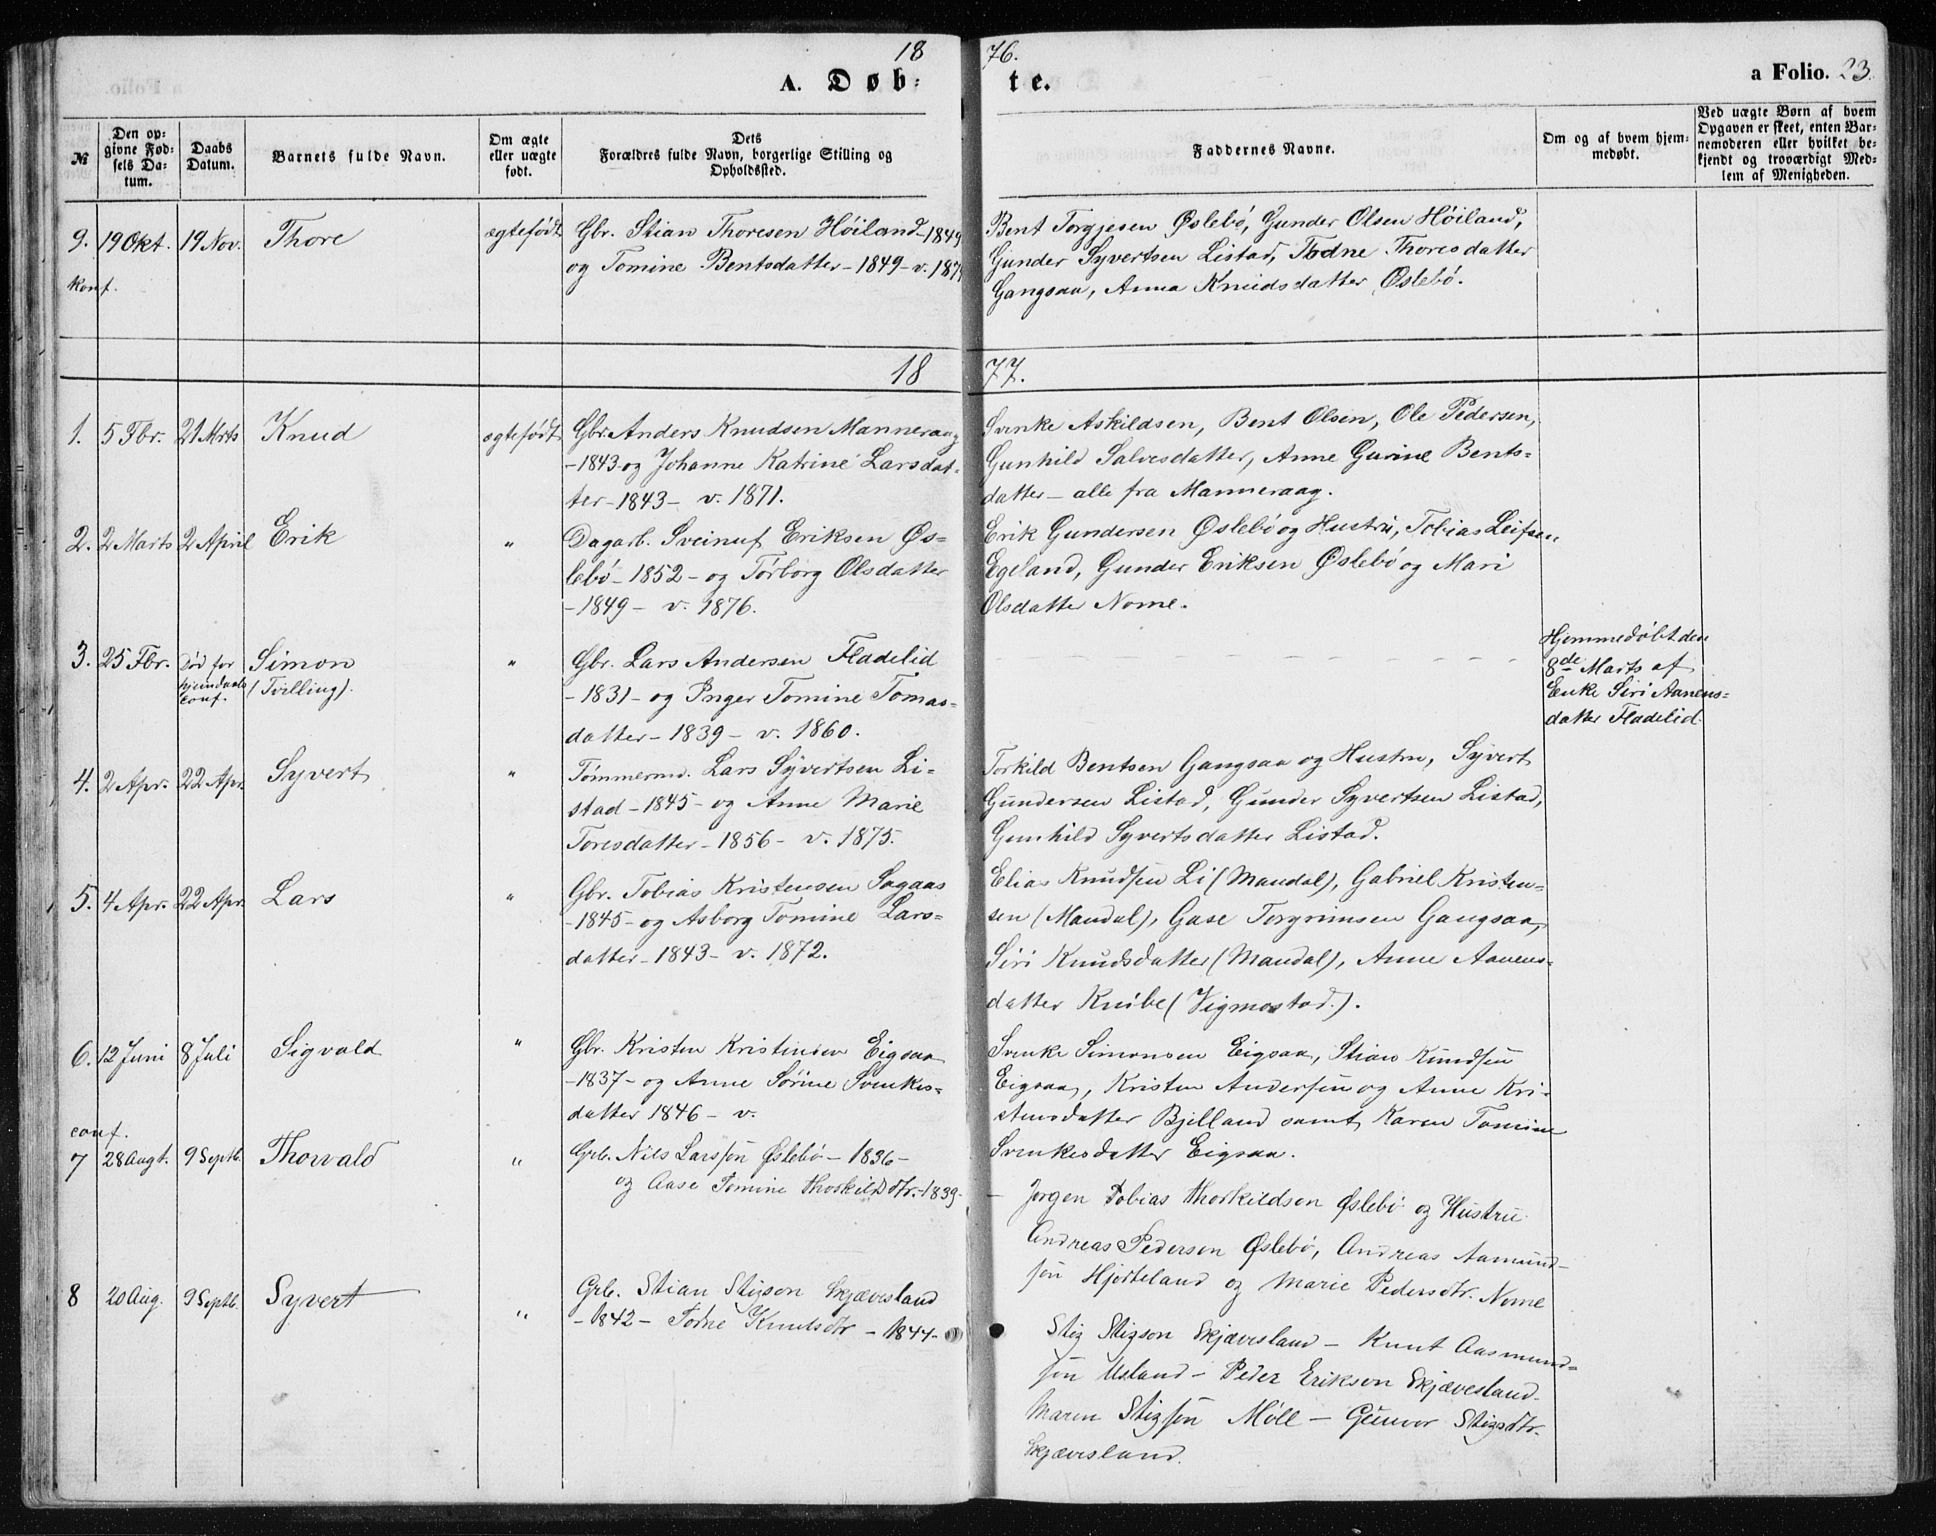 18 76.
A. Døb: te.
a Folio. 23.
№
Den op-
givne Fød-
sels Da-
tum.
Daabs
Datum.
Barnets fulde Navn.
Om ægte
eller uægte
født.
Dets
Forældres fulde Navn, borgerlige Stilling og
Opholdssted.
Faddernes Navne.
Om og af hvem hjem-
medøbt.
Ved uægte Børn af hvem
Opgaven er skeet, enten Bar-
nemoderen eller hvilket be-
kjendt og troværdigt Med-
lem af Menigheden.
9. 19 Okt. 19 Nov. Thore ægtefødt
konf.
Gbr. Stian Thoresen Höiland - 1849
og Tomine Bentsdatter - 1849 - v. 187
Bent Torgjesen Öslebö, Gunder Olsen Höiland,
Gunder Syvertsen Listad, Todne Thoresdatter
Gangsaa, Anna Knudsdatter Öslebö.
18 77.
1. 5 Fbr. 21 Mrts Knud ægtefødt
Gbr. Anders Knudsen Manneraag
- 1843 og Johanne Katrine Larsdat-
ter - 1843 - v. 1871.
Svenke Askildsen, Bent Olsen, Ole Pedersen,
Gunhild Salvesdatter, Anne Gurine Bents-
datter - alle fra Manneraag.
2. 2 Marts 2 April Erik "
Dagarb. Sveinuf Eriksen Ös-
lebö - 1852 - og Torborg Olsdatter
- 1849 - v. 1876.
Erik Gundersen Öslebö og Hustru, Tobias Leifsen
Egeland, Gunder Eriksen Öslebö og Mari
Olsdatter Nome.
3. 25 Fbr. Död for
hjemdaab
conf.
Simon
(Tvilling). "
Gbr. Lars Andersen Fladelid
- 1831 - og Inger Tomine Tomas-
datter - 1839 - v. 1860.
Hjemmedöbt den
8de Marts af
Enke Siri Aanens-
datter Fladelid.
4. 2 Apr. 22 Apr. Syvert "
Tömmermd. Lars Syvertsen Li-
stad - 1845 - og Anne Marie
Toresdatter - 1856 - v. 1875.
Torkild Bentsen Gangsaa og Hustru, Syvert
Gundersen Listad, Gunder Syvertsen Listad,
Gunhild Syvertsdatter Listad.
5. 4 Apr. 22 Apr. Lars "
Gbr. Tobias Kristensen Sagaas
- 1845 - og Asborg Tomine Lars-
datter - 1843 - v. 1872.
Elias Knudsen Li (Mandal), Gabriel Kristen-
sen (Mandal), Gase Torgrimsen Gangsaa,
Siri Knudsdatter (Mandal), Anne Aanens-
datter Knibe (Vigmostad.).
6. 12 Juni 8 Juli Sigvald "
Gbr. Kristen Kristensen Eigsaa
- 1837 - og Anne Sörine Svenkes-
datter 1846 - v.
Svenke Simonsen Eigsaa, Stian Knudsen
Eigsaa, Kristen Andersen og Anne Kri-
stensdatter Bjelland samt Karen Tomine
Svenkesdatter Eigsaa.
conf.
7 28 Augt. 9 Septb. Thorvald "
Grb. Nils Larsson Öslebö - 1836 -
og Aase Tomine Thorkildsdtr. - 1839 -
Jörgen Tobias Thorkildson Öslebö og Hustru
Andreas Pederson Öslebö, Andreas Aamund-
son Hjorteland og Marie Pedersdtr. Nome
8 20 Aug. 9 Septb. Syvert "
Grb. Stian Stigson Skjævesland
- 1842 - Tödne Knutsdtr - 1844 -
Stig Stigson Skjævesland - Knut Aasmund-
son Usland - Peder Erikson Skjævesland -
Maren Stigson Möll - Gunvor Stigsdtr.
Skjævesland.